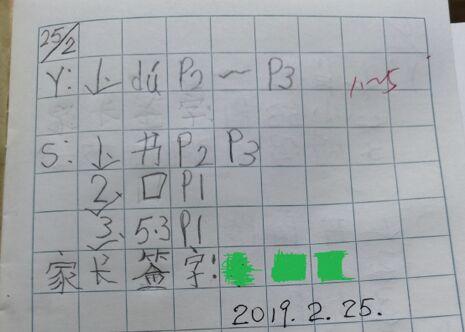 25/2
Y: 1. dú P2 ~ P3
S: 1. 书 P2 P3
2. 口 P1
3. 5·3 P1
家长签字:
2019.2.25.